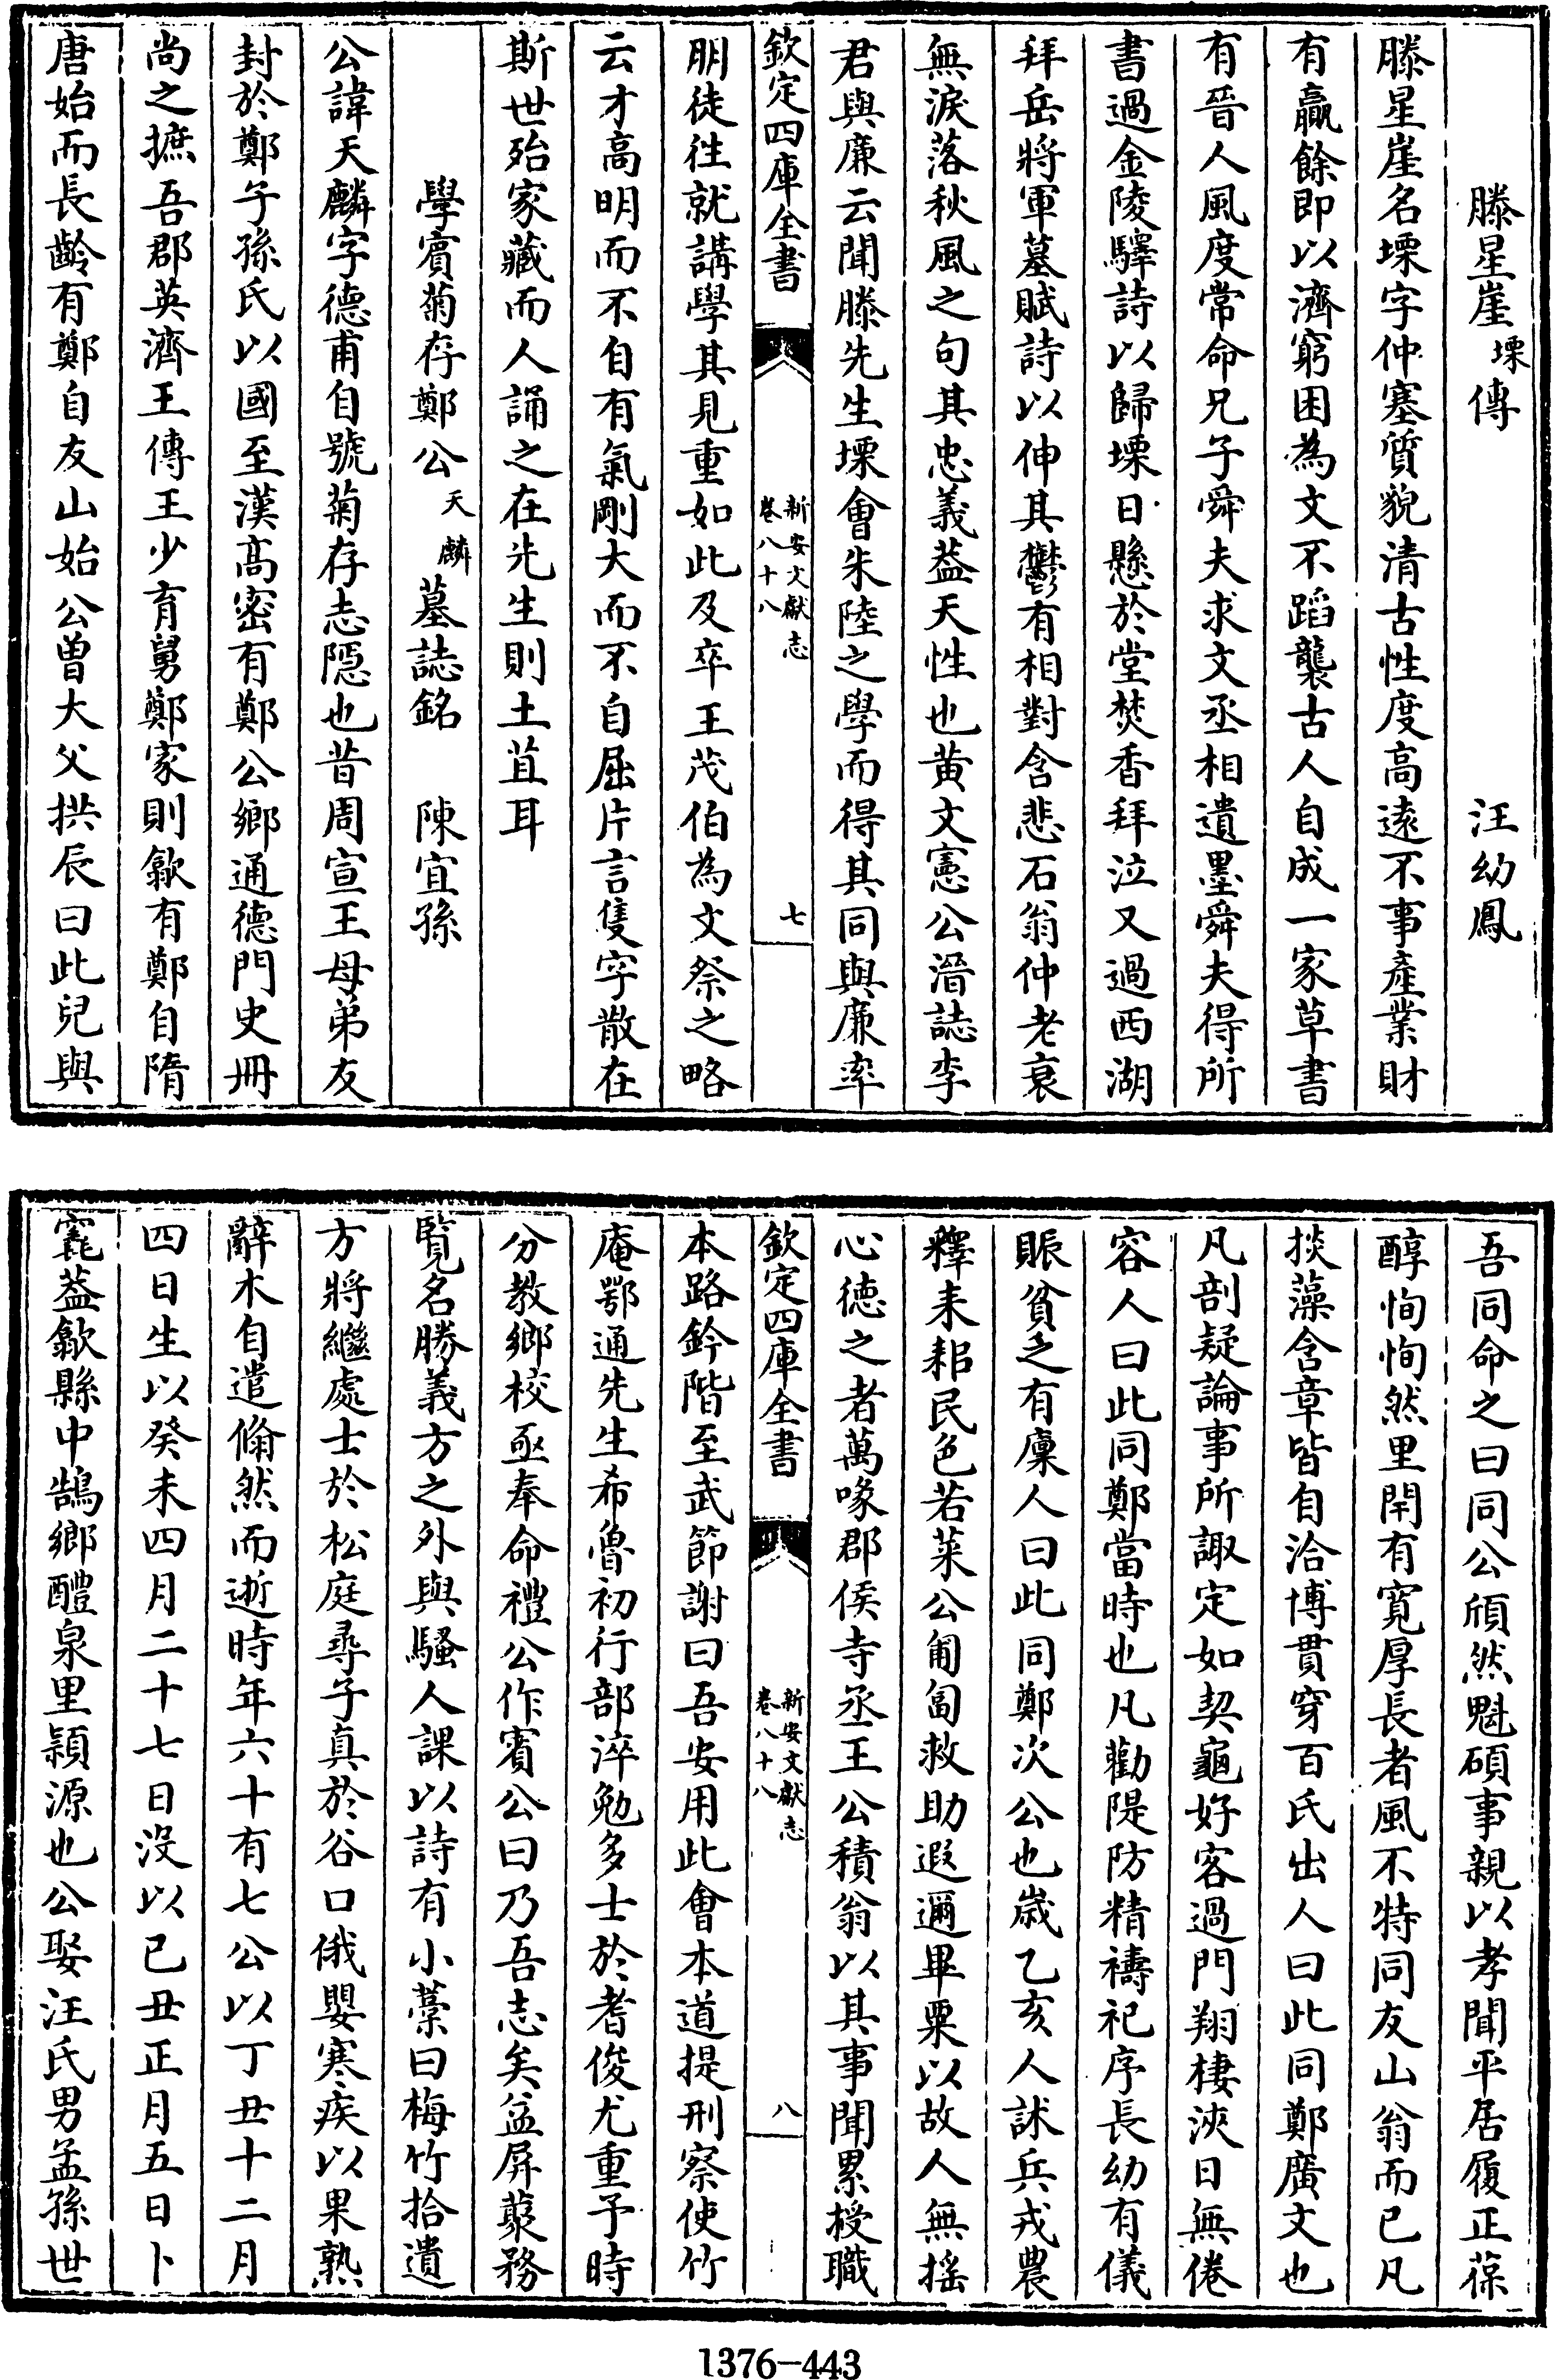 滕星崖㙺傳　汪幼鳳
滕星崖名㙺字仲塞質貌清古性度高遠不事產業財
有贏餘即以濟窮困為文不蹈襲古人自成一家草書
有晉人風度常命兄子舜夫求文丞相遺墨舜夫得所
書過金陵驛詩以歸㙺日懸於堂焚香拜泣又過西湖
拜岳將軍墓賦詩以伸其鬱有相對含悲石翁仲老衰
無淚落秋風之句其忠義葢天性也黄文憲公溍誌李
君與廉云聞滕先生㙺會朱陸之學而得其同與廉率
欽定四庫全書
新安文獻志
卷八十八
七
朋徒徃就講學其見重如此及卒王茂伯為文祭之略
云才高明而不自有氣剛大而不自屈片言隻字散在
斯世殆家藏而人誦之在先生則土苴耳
學賓菊存鄭公天麟墓誌銘　陳宜孫
公諱天麟字德甫自號菊存志隱也昔周宣王母弟友
封於鄭子孫氏以國至漢高密有鄭公鄉通德門史冊
尚之摭吾郡英濟王傳王少育舅鄭家則歙有鄭自隋
唐始而長齡有鄭自友山始公曽大父拱辰曰此兒與
吾同命之曰同公頎然魁碩事親以孝聞平居履正葆
醇恂恂然里閈有寛厚長者風不特同友山翁而已凡
掞藻含章皆自洽博貫穿百氏出人曰此同鄭廣文也
凡剖疑論事所諏定如契龜好客過門翔棲浹日無倦
容人曰此同鄭當時也凡勸隄防精禱祀序長幼有儀
賑貧乏有廩人曰此同鄭次公也歲乙亥人訹兵戎農
釋耒耜民色若菜公匍匐救助遐邇畢粟以故人無摇
心徳之者萬喙郡侯寺丞王公積翁以其事聞累授職
欽定四庫全書
新安文獻志
卷八十八
八
本路鈐階至武節謝曰吾安用此會本道提刑察使竹
庵鄂通先生希魯初行部淬勉多士於耆俊尤重予時
分教鄉校亟奉命禮公作賓公曰乃吾志矣益屏藂務
覧名勝義方之外與騷人課以詩有小藳曰梅竹拾遺
方將繼處士於松庭尋子真於谷口俄嬰寒疾以果熟
辭木自遣翛然而逝時年六十有七公以丁丑十二月
四日生以癸未四月二十七日没以己丑正月五日卜
窀葢歙縣中鵠鄉醴泉里潁源也公娶汪氏男孟孫世
1376-443